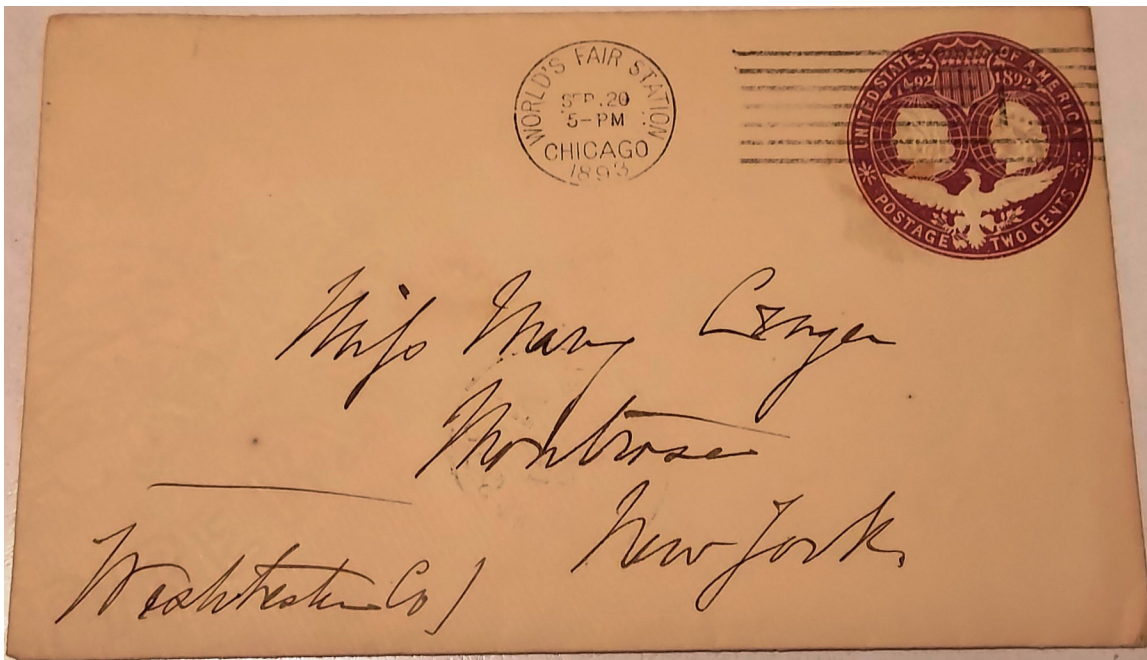 WORLD'S FAIR STATION
SEP. 20
5-PM
CHICAGO
1893
UNITED STATES OF AMERICA
1492 1892
POSTAGE TWO CENTS
Miss Mary
Montrose
New York.
Westchester Co)